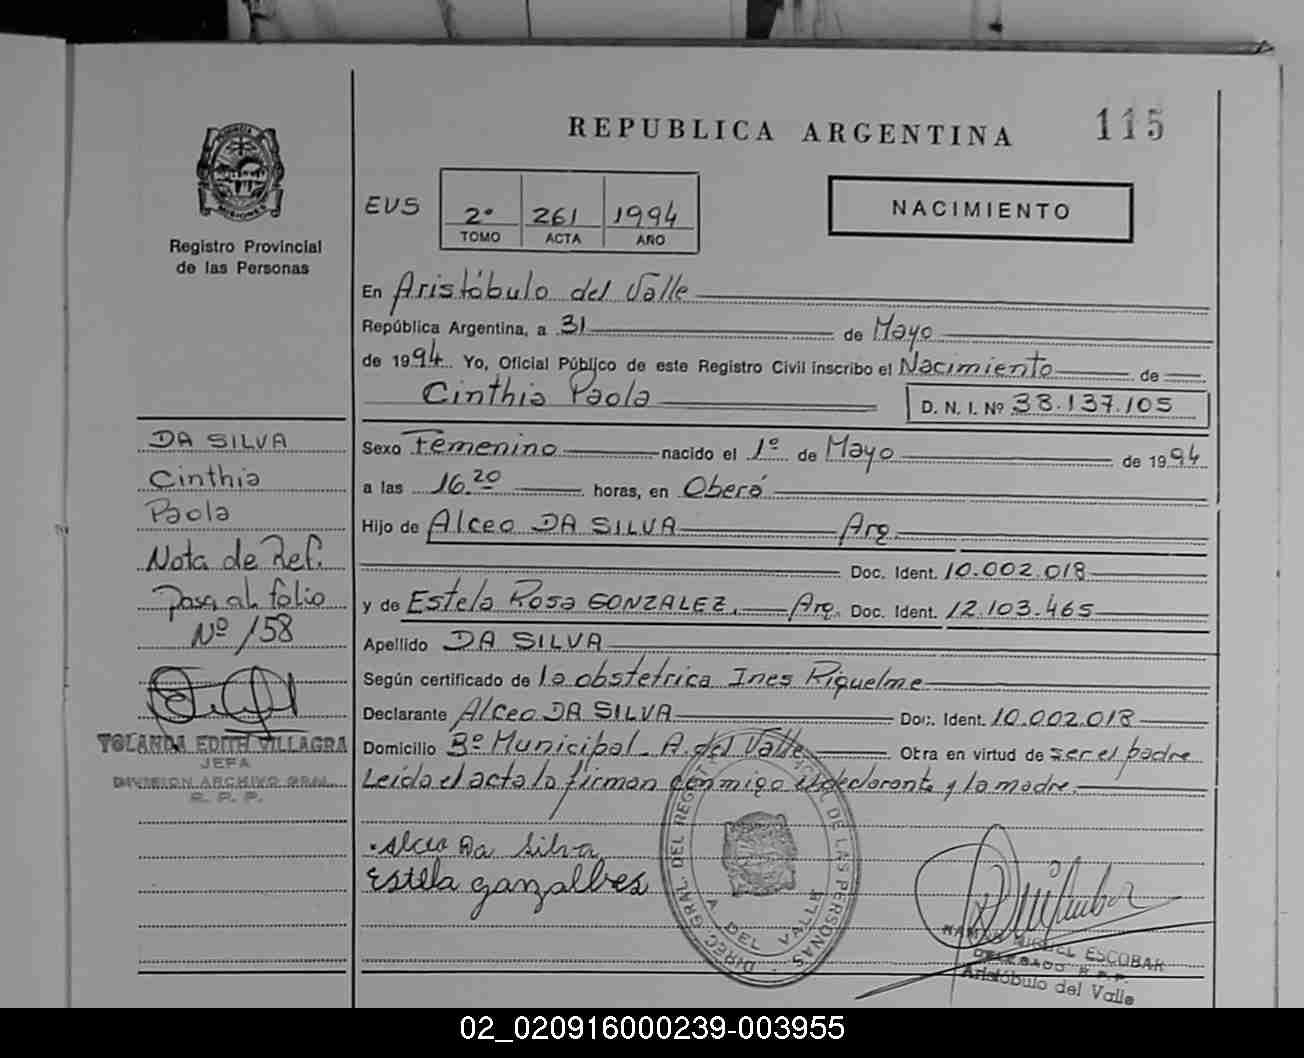 REPUBLICA ARGENTINA
115
PROVINCIA DE
MISIONES
Registro Provincial
de las Personas
EVS
2º 261 1994
TOMO ACTA AÑO
NACIMIENTO
En Aristóbulo del Valle
República Argentina, a 31 de Mayo
de 1994 Yo, Oficial Público de este Registro Civil inscribo el Nacimiento de
Cinthia Paola
D. N. I. Nº 38.137.105
Sexo Femenino nacido el 1º de Mayo de 1994
a las 16.20 horas, en Oberá
Hijo de Alceo DA SILVA Arg.
Doc. Ident. 10.002.018
y de Estela Rosa GONZALEZ. Arg. Doc. Ident. 12.103.465
Apellido DA SILVA
Según certificado de la obstetrica Ines Riquelme
Declarante Alceo DA SILVA Doc. Ident. 10.002.018
Domicilio Bº Municipal - A. del Valle Otra en virtud de ser el padre
Leída el acta la firman conmigo el declarante y la madre.
Alceo Da Silva
Estela ganzalbes
DIREC. GRAL. DEL REGISTRO DE LAS PERSONAS
A. DEL VALLE
RAMON MIGUEL ESCOBAR
DELEGADO R.P.P.
Aristóbulo del Valle
DA SILVA
Cinthia
Paola
Nota de Ref.
Pasa al folio
Nº 158
YOLANDA EDITH VILLAGRA
JEFA
DIVISION ARCHIVO GRAL.
R. P. P.
02_020916000239-003955